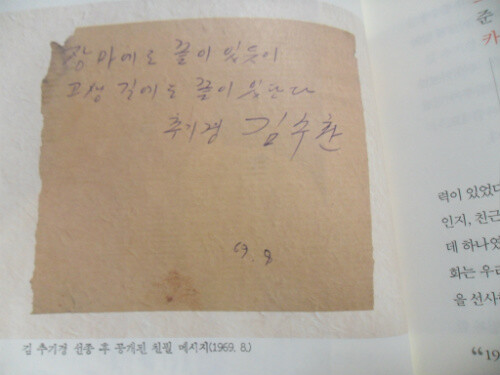 장마에도 끝이 있듯이
고생길에도 끝이 있단다
추기경 김수환
69. 8
김 추기경 선종 후 공개된 친필 메시지(1969. 8.)
준
카
력이 있었다
인지, 친근
데 하나였
화는 우리
을 선사
“19